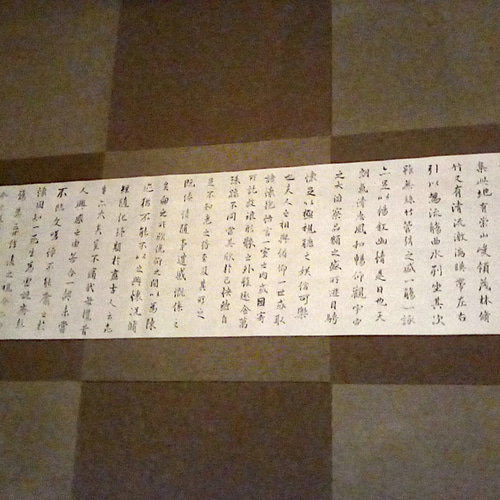 集此地有崇山峻領茂林脩
竹又有清流激湍暎帶左右
引以為流觴曲水列坐其次
雖無絲竹管弦之盛一觴一詠
亦足以暢敘幽情是日也天
朗氣清惠風和暢仰觀宇宙
之大俯察品類之盛所遊目騁
懷足以極視聽之娛信可樂
也夫人之相與俯仰一世或取
諸懷抱悟言一室之內或因寄
所託放浪形骸之外雖趣舍萬
殊不同當其欣於己快然自
足不知老之將至及其所之
既惓情隨事遷感慨係之
矣向之所欣俛仰之間以為陳
迹猶不能不以之興懷況脩
短隨化終期於盡古人云死
生亦大矣豈不痛哉每攬昔
人興感之由若合一契未嘗
不臨文嗟悼不能喻之於
懷固知一死生為虛誕齊彭
殤為妄作後之視今